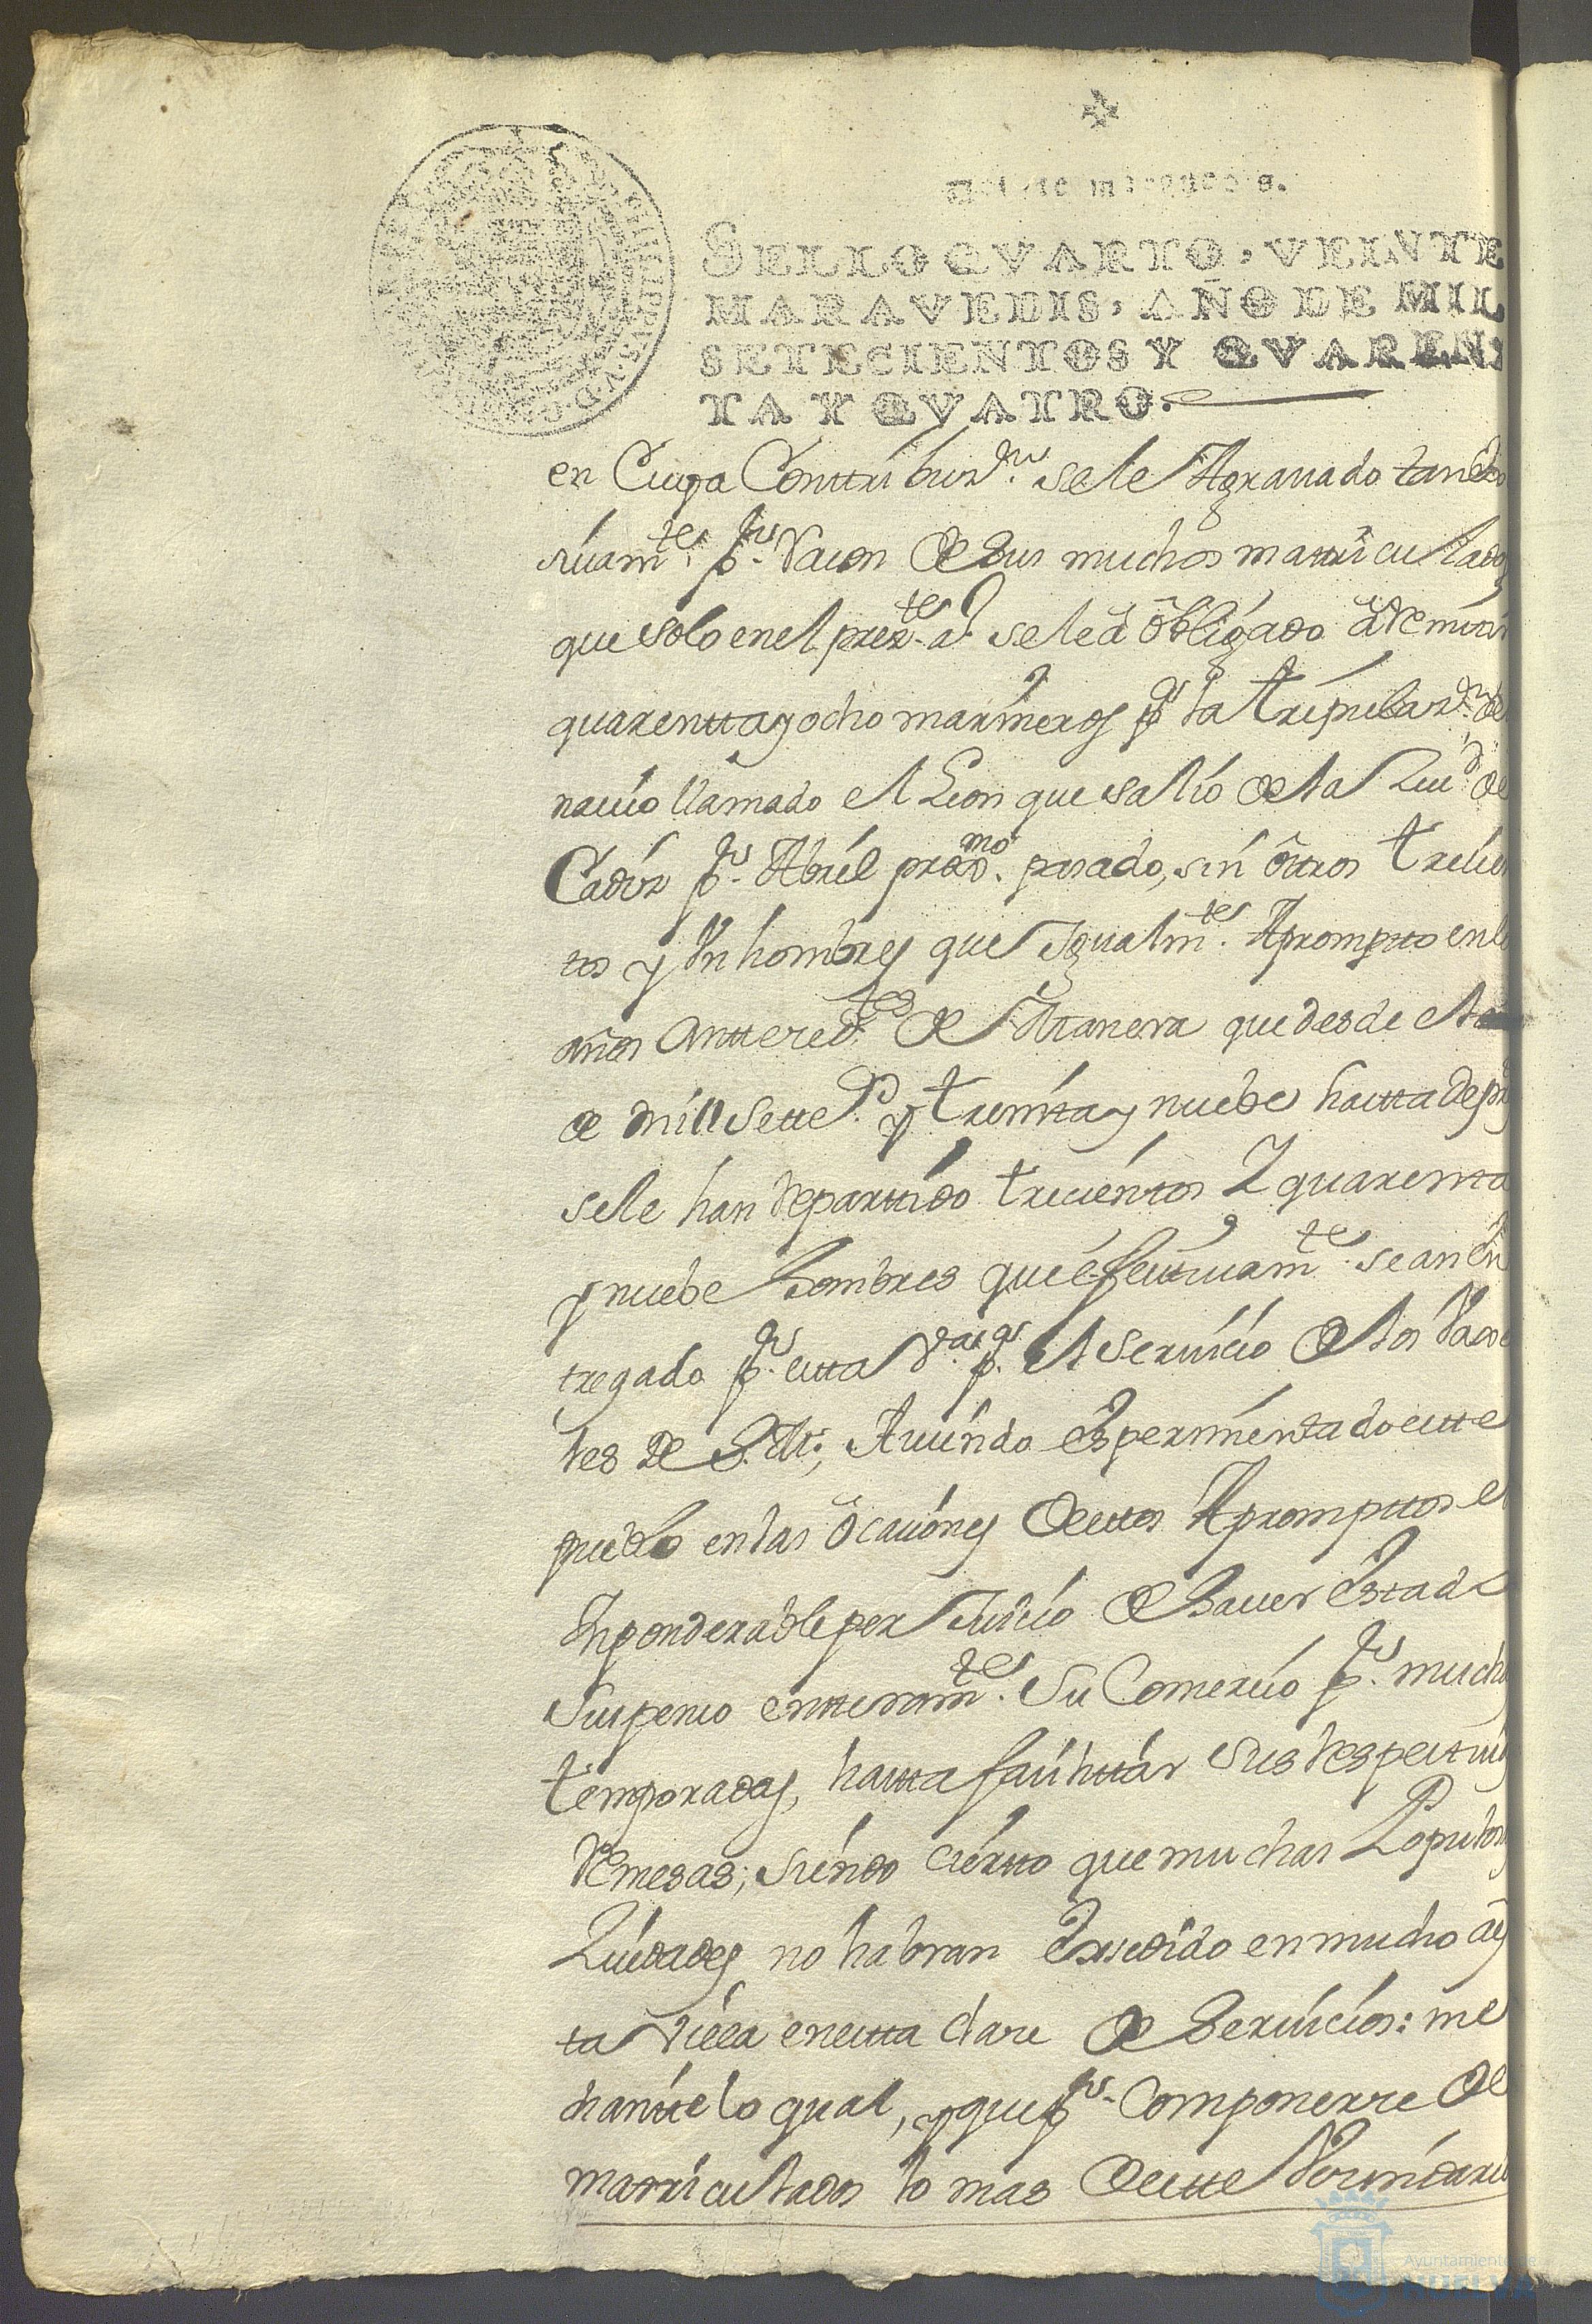 SELLO QVARTO, VEINTE
MARAVEDIS, AÑO DE MIL
SETECIENTOS Y QVAREN
TA Y QVATRO.
en Cuya Conttribuz.on se le Agrauado
p.r Razon de sus muchos mattriculados
que solo en el prez.te a.o se le â ôbligado â Remitir
quarentta y ocho marineros p.a la tripulaz.on de
nauio llamado el Leon que salio de la Ziu.d de
Cadiz p.r Abril prox.mo pasado, sin ôttros trecien
tos y Un hombres que Igualm.te Apromptto en lo
años Anttered.tes de Manera que desde el
de mill sette.s y treintta y nuebe hastta
se le han Repartido trecientos Y quarenta
y nuebe hombres que efecttiuam.te se an en
tregado p.r estta V.a p.a el seruicio de los Vaxe
les de S. M.; Auiendo Esperimentado estte
pueblo en las ôcasiones de esttos Apromttos el
Inponderable perJuicio de hauer Estado
suspenso entteram.te su Comercio p.r muchas
temporadas, hastta su respectiuas
Remesas; siendo ciertto que muchas Populosas
Ziudades no habran Exsedido en mucho â es
ta Villa en estta clase de Seruicios: me
diantte lo qual, y que p.r Componerse de
mattriculados lo mas de estte Vecindario
Ayuntamiento de
HUELVA